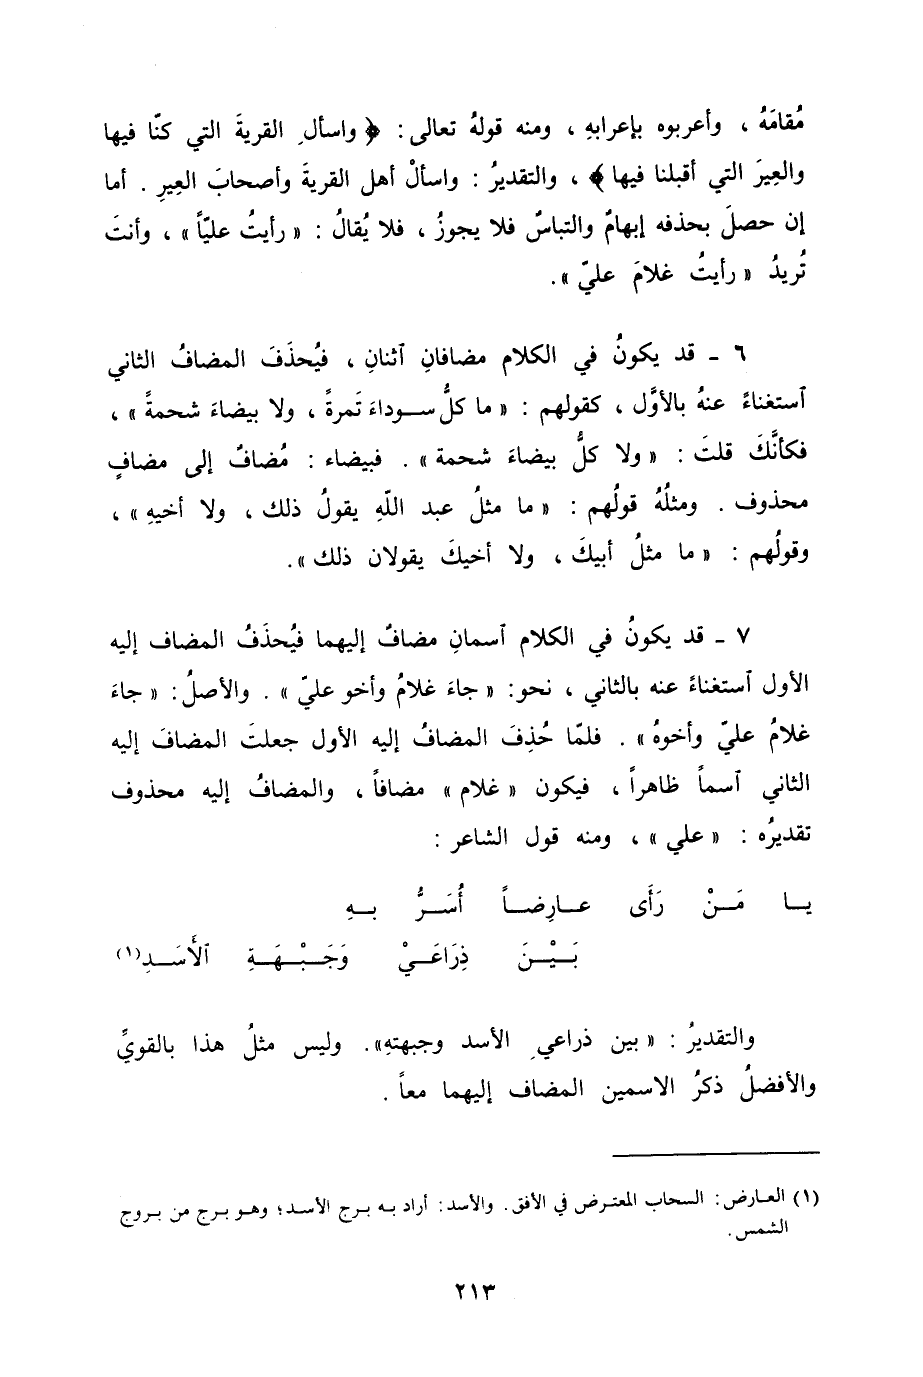 مُقامَهُ ، وأعربوه بإعرابهِ ، ومنه قولهُ تعالى : ﴿ واسألِ القريةَ التي كنّا فيها
والعِيرَ التي أقبلنا فيها ﴾ ، والتقديرُ : واسألْ أهل القريةَ وأصحابَ العِيرِ . أما
إن حصلَ بحذفه إبهامٌ والتباسٌ فلا يجوزُ ، فلا يُقالُ : « رأيتُ عليّاً » ، وأنتَ
تُريدُ « رأيتُ غلامَ عليّ ».
٦ ـ قد يكونُ في الكلام مضافانِ آثنانِ ، فيُحذَفَ المضافُ الثاني
آستغناءً عنهُ بالأوَّل ، كقولهم : « ما كلُّ سوداءَ تَمرةً ، ولا بيضاءَ شحمةً » ،
فكأنَّكَ قلتَ : « ولا كلُّ بيضاءَ شحمة » . فبيضاء : مُضافٌ إلى مضافٍ
محذوف . ومثلُهُ قولُهم : « ما مثلُ عبد اللّهِ يقولُ ذلك ، ولا أخيهِ » ،
وقولُهم : « ما مثلُ أبيكَ ، ولا أخيكَ يقولان ذلك ».
٧ ـ قد يكونُ في الكلام آسمانِ مضافٌ إليهما فيُحذَفُ المضاف إليه
الأول آستغناءً عنه بالثاني ، نحو: « جاءَ غلامُ وأخو عليّ » . والأصلُ: « جاءَ
غلامُ عليّ وأخوهُ » . فلمّا حُذِفَ المضافُ إليه الأول جعلتَ المضافَ إليه
الثاني آسماً ظاهراً ، فيكون « غلام » مضافاً ، والمضافُ إليه محذوف
تقديرُه : « علي » ، ومنه قول الشاعر :
يـا مَـنْ رَأَى عـارِضـاً أُسَـرُّ بـهِ
بَـيْـنَ ذِرَاعَـيْ وَجَـبْـهَـةِ آلأَسَـدِ(١)
والتقديرُ : « بين ذراعيِ الأسد وجبهتهِ». وليس مثلُ هذا بالقويِّ
والأفضلُ ذكرُ الاسمين المضاف إليهما معاً .
(١) العارض: السحاب المعترض في الأفق. والأسد: أراد به برج الأسد؛ وهو برج من بروج
الشمس.
٢١٣